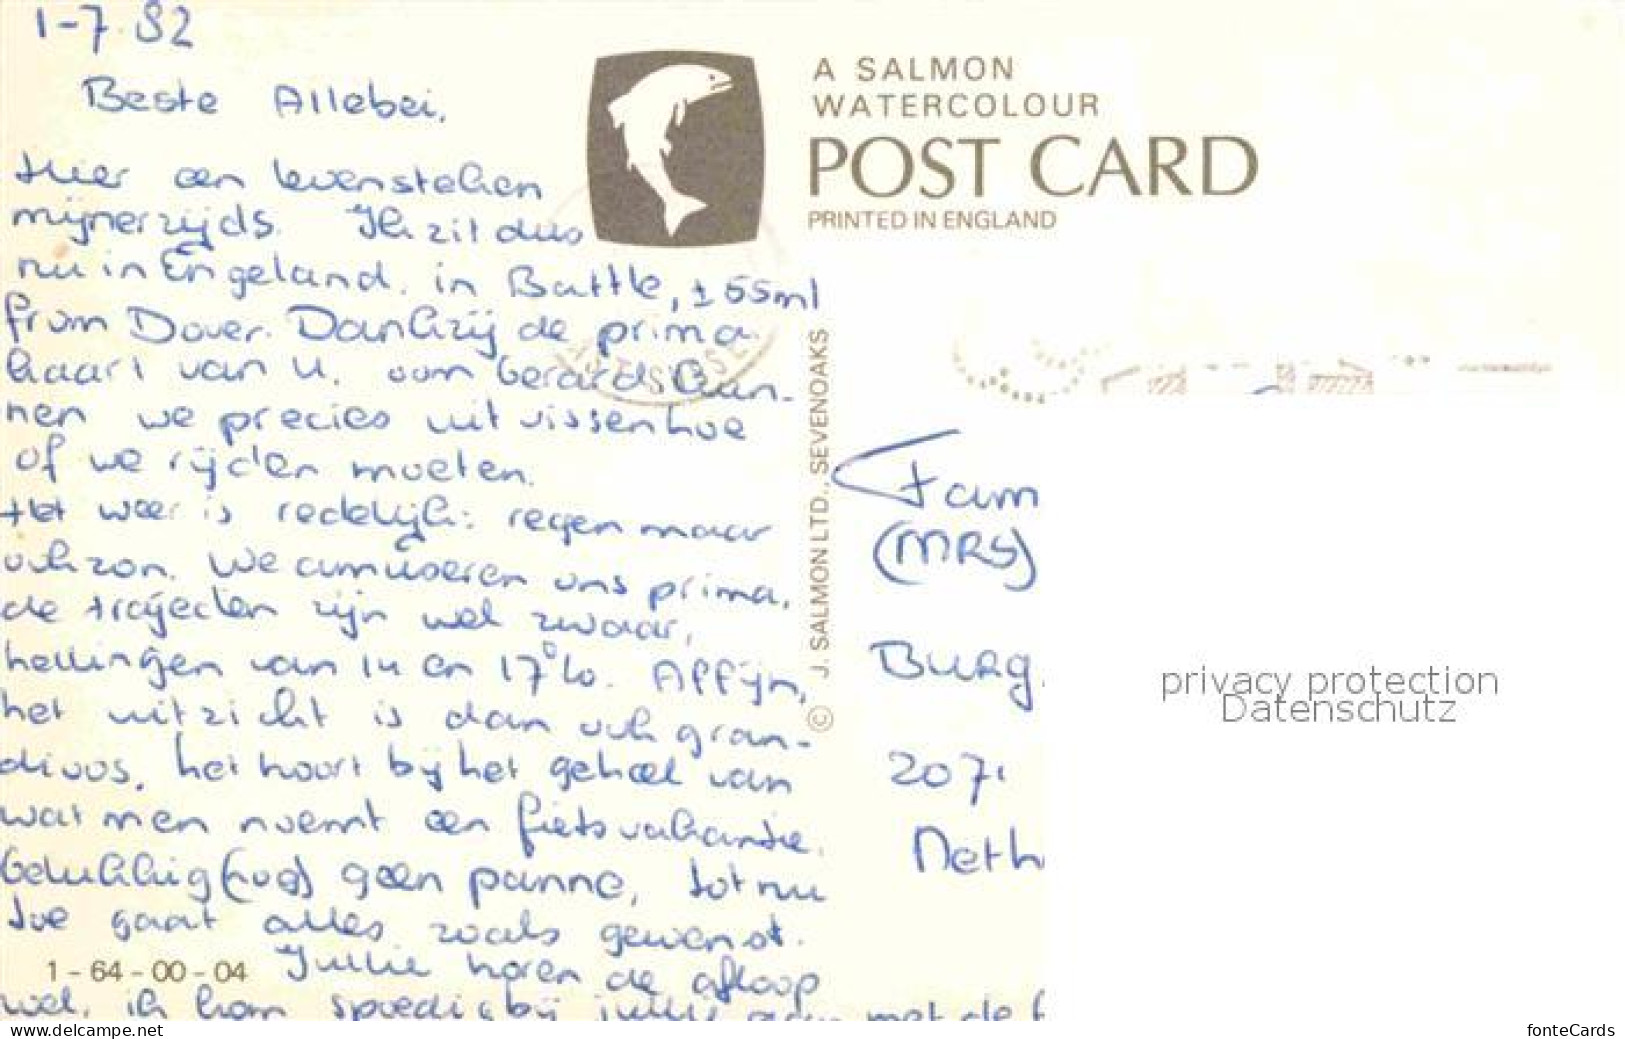 1-7.82
Beste Allebei,
Hier een levensteken
mijnerzijds. Ik zit dus
nu in Engeland. in Battle, ± 55ml
from Dover. Dankzij de prima
kaart van u, oom Gerard kun-
nen we precies uitvissen hoe
of we rijden moeten.
Het weer is redelijk: regen maar
ook zon. We amuseren ons prima,
de trajecten zijn wel zwaar,
hellingen van 14 en 17%. Affijn,
het uitzicht is dan ook gran-
dioos, het hoort bij het geheel van
wat men noemt een fietsvakantie.
Gelukkig (nog) geen panne, tot nu
toe gaat alles zoals gewenst.
Jullie horen de afloop
wel, ik kom spoedig bij jullie met de
1-64-00-04
A SALMON
WATERCOLOUR
POST CARD
PRINTED IN ENGLAND
© J. SALMON LTD., SEVENOAKS
Fam
(MRS)
Burg.
2071
Neth
privacy protection
Datenschutz
www.delcampe.net
fonteCards